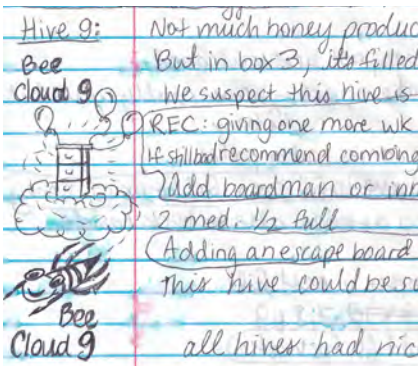 Hive 9: Not much honey produc
Bee But in box 3, its filled
Cloud 9 We suspect this hive is
REC: giving one more wk
If still bad recommend combing
Add boardman or in
2 med. 1/2 full
Adding an escape board
This hive could be
Bee
Cloud 9 all hives had nic